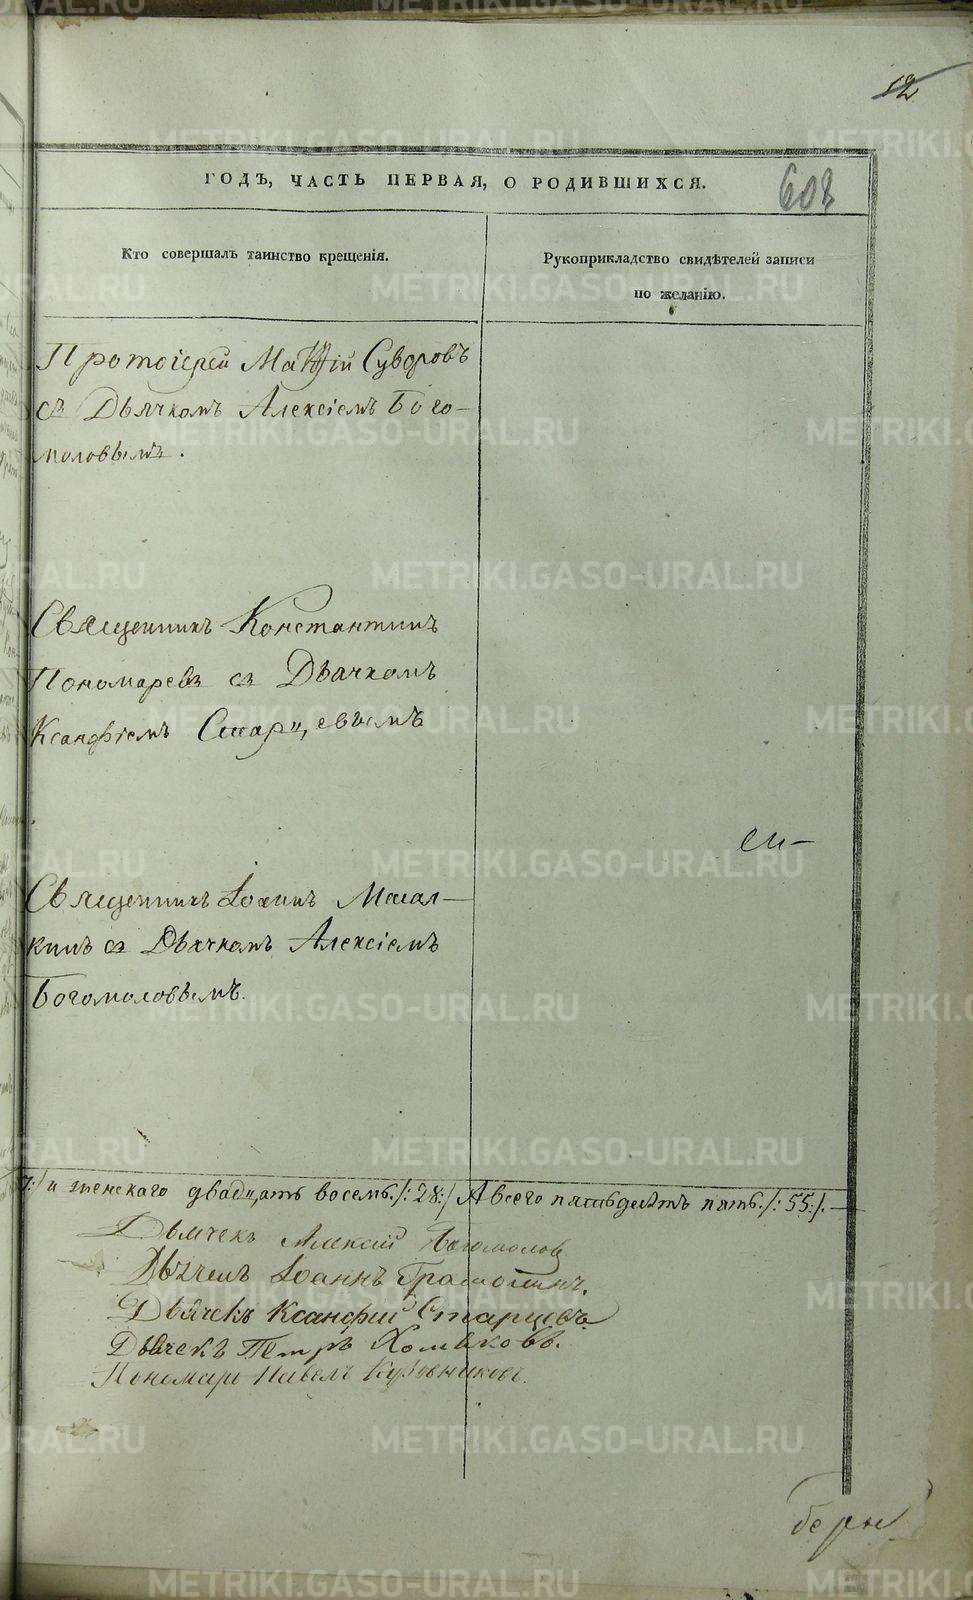 12
608
ГОДЪ, ЧАСТЬ ПЕРВАЯ, О РОДИВШИХСЯ.
Кто совершалъ таинство крещенія.
Рукоприкладство свидѣтелей записи
по желанію.
Протоіерей Матѳій Суворовъ
съ Дьячкомъ Алексіемъ Бого-
моловымъ.
Священникъ Константинъ
Пономаревъ съ Дьячкомъ
Ксанфіемъ Старцевымъ
Священникъ Іоаннъ
съ Дьячкомъ Алексіемъ
Богомоловымъ.
7:/ и женскаго двадцать восемь /:28:/ А всего пятьдесятъ пять /:55:/.—
Дьячекъ Алексій Богомоловъ
Дьячекъ Іоаннъ
Дьячекъ Ксанфій Старцевъ
Дьячекъ Петръ Хомяковъ.
Пономарь Павелъ
METRIKI.GASO-URAL.RU